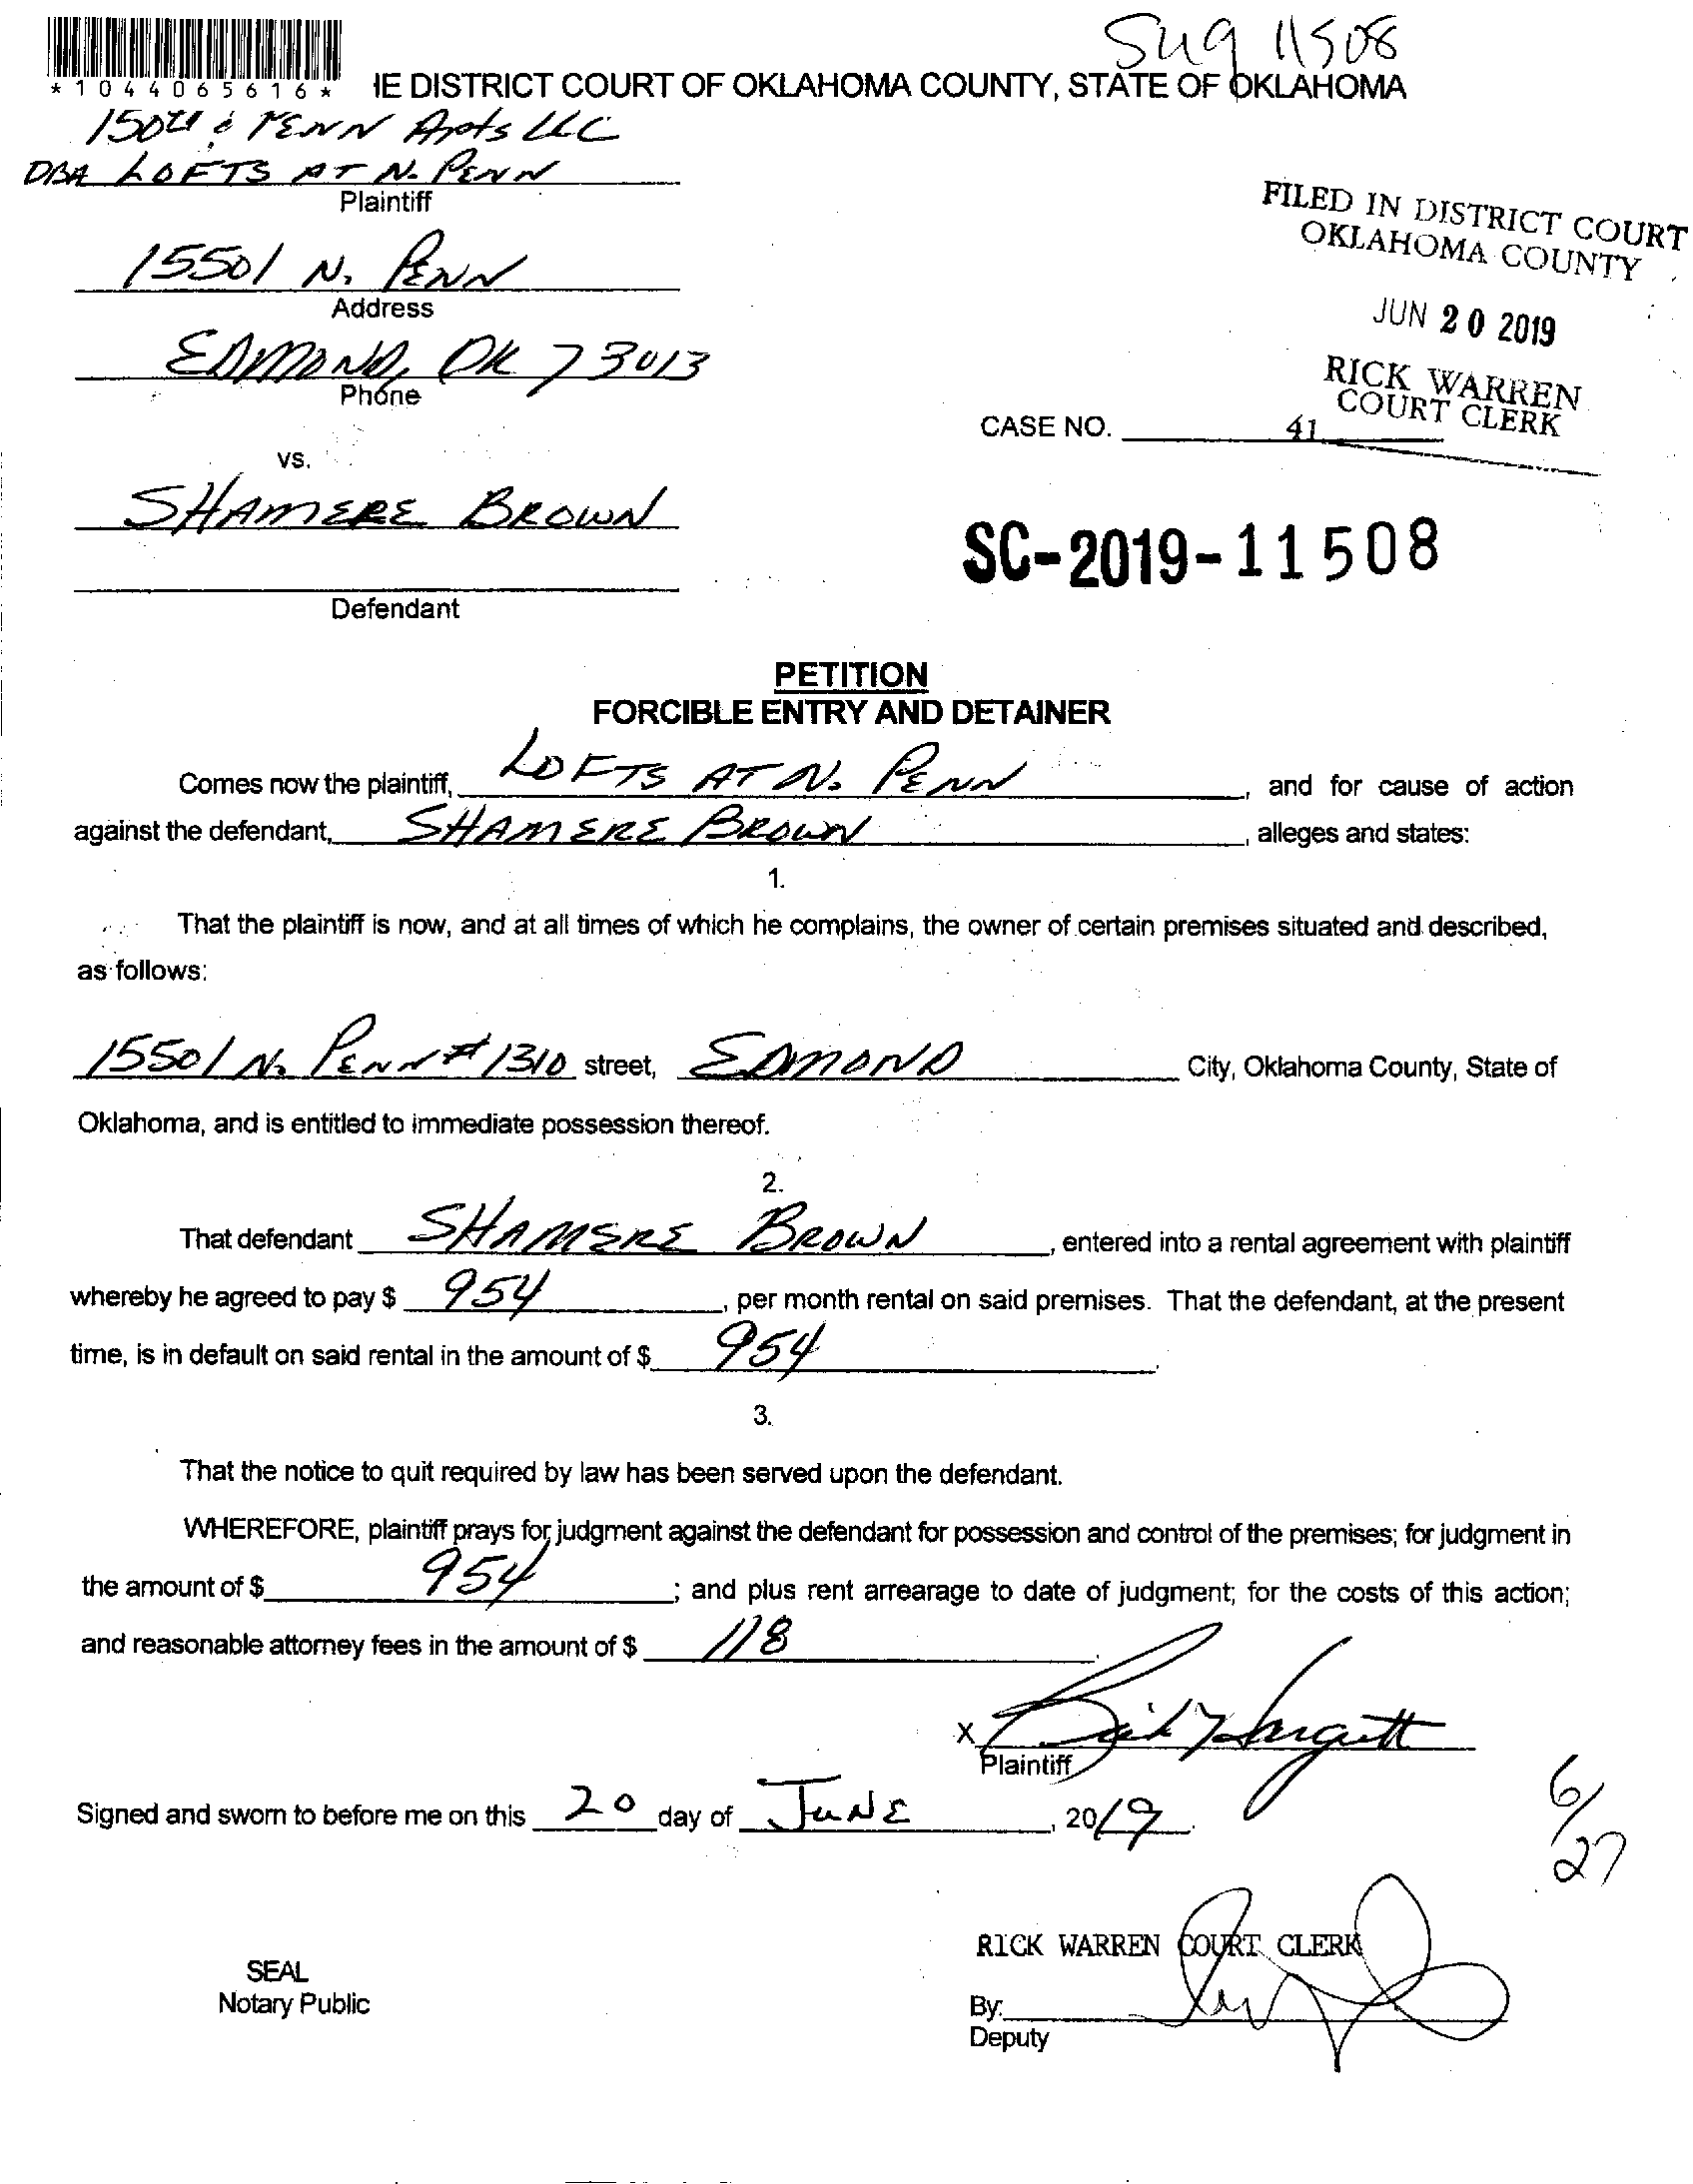 Su9 11508
*1044065616*
IE DISTRICT COURT OF OKLAHOMA COUNTY, STATE OF OKLAHOMA
150th & PENN Apts LLC
DBA LOFTS AT N. PENN
Plaintiff
FILED IN DISTRICT COURT
OKLAHOMA COUNTY
15501 N. PENN
Address
JUN 20 2019
EDMOND, OK 73013
Phone
RICK WARREN
COURT CLERK
CASE NO.
41
vs.
SHAMERE BROWN
SC-2019-11508
Defendant
PETITION
FORCIBLE ENTRY AND DETAINER
Comes now the plaintiff, LOFTS AT N. PENN, and for cause of action
against the defendant, SHAMERE BROWN, alleges and states:
1.
That the plaintiff is now, and at all times of which he complains, the owner of certain premises situated and described,
as follows:
15501 N. PENN # 1310 street, EDMOND City, Oklahoma County, State of
Oklahoma, and is entitled to immediate possession thereof.
2.
That defendant SHAMERE BROWN, entered into a rental agreement with plaintiff
whereby he agreed to pay $ 954, per month rental on said premises. That the defendant, at the present
time, is in default on said rental in the amount of $ 954.
3.
That the notice to quit required by law has been served upon the defendant.
WHEREFORE, plaintiff prays for judgment against the defendant for possession and control of the premises; for judgment in
the amount of $ 954; and plus rent arrearage to date of judgment; for the costs of this action;
and reasonable attorney fees in the amount of $ 118.
X
Plaintiff
Signed and sworn to before me on this 20 day of JUNE, 2019.
6/27
RICK WARREN COURT CLERK
SEAL
Notary Public
By:
Deputy